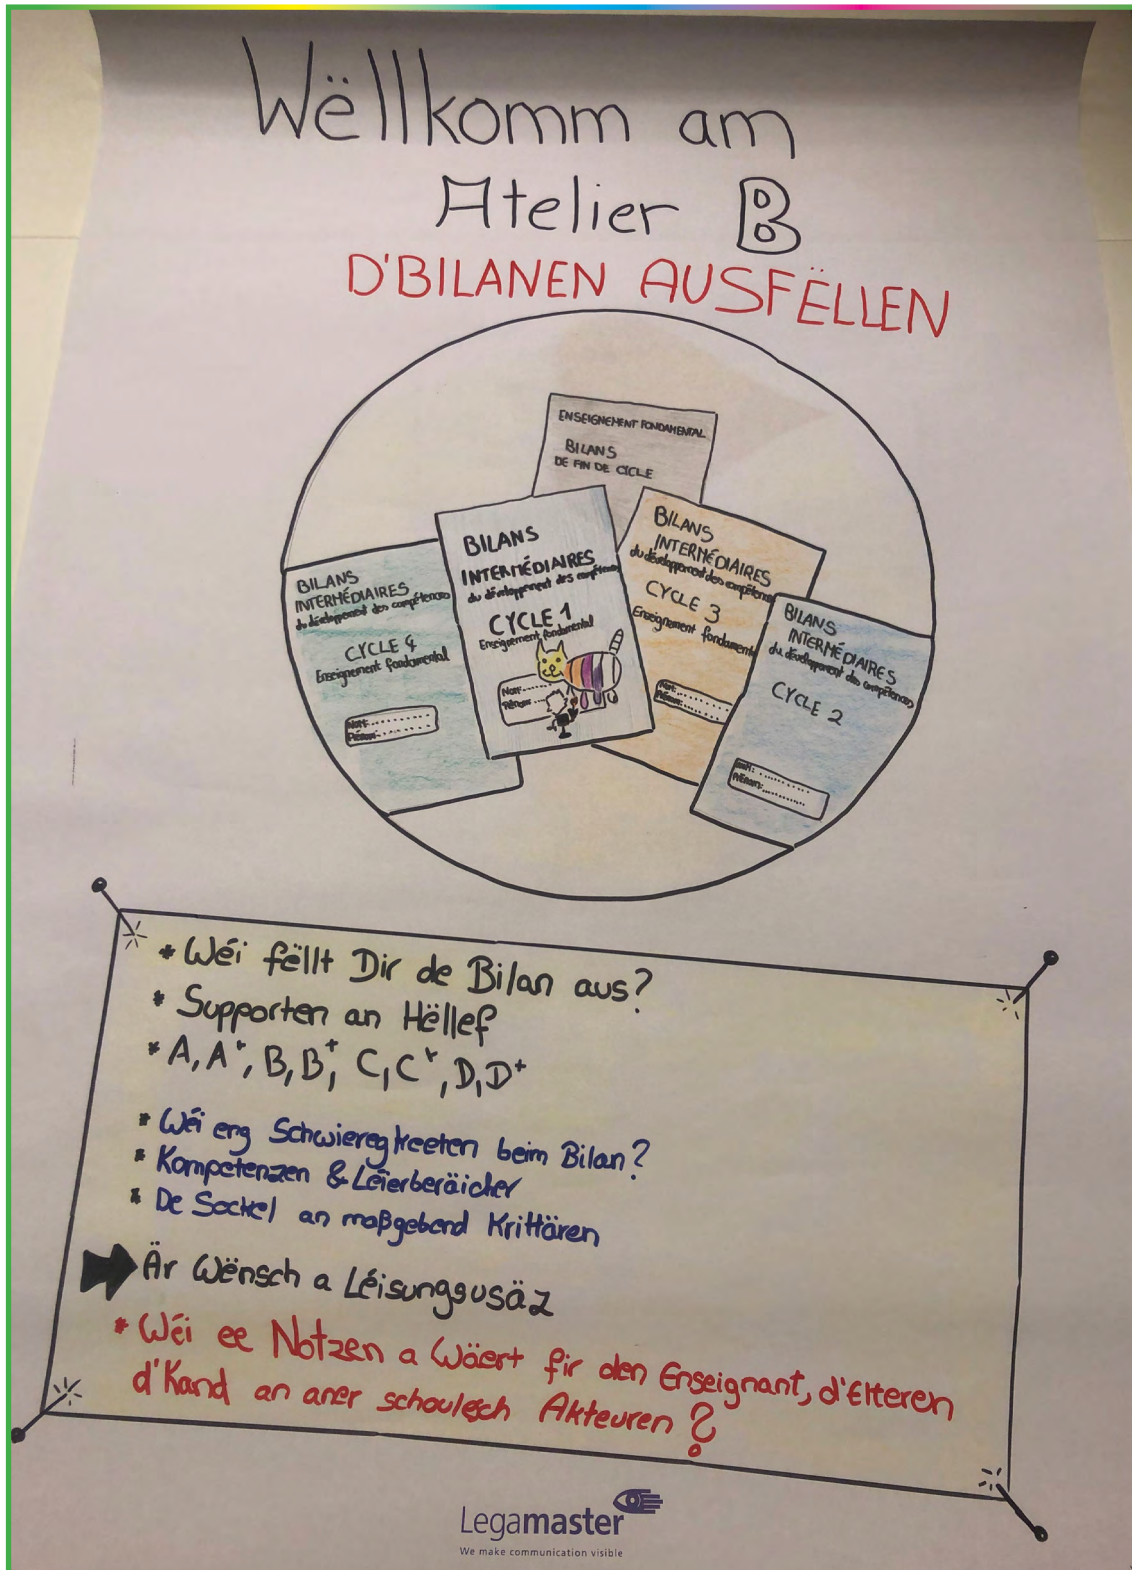 Wëllkomm am
Atelier B
D'BILANEN AUSFËLLEN
ENSEIGNEMENT FONDAMENTAL
BILANS
DE FIN DE CICLE
BILANS
INTERMÉDIAIRES
du développement des compétences
CYCLE 4
Enseignement fondamental
Nom:..........
Prénom:..........
BILANS
INTERMÉDIAIRES
du développement des compétences
CYCLE 1
Enseignement fondamental
Nom:
Prénom:
BILANS
INTERMÉDIAIRES
du développement des compétences
CYCLE 3
Enseignement fondamental
Nom:..........
Prénom:..........
BILANS
INTERMÉDIAIRES
du développement des compétences
CYCLE 2
Nom:..........
Prénom:..........
* Wéi fëllt Dir de Bilan aus?
* Supporten an Hëllef
* A, A+, B, B+, C, C+, D, D+
* Wéi eng Schwieregkeeten beim Bilan?
* Kompetenzen & Léierberäicher
* De Sockel an maßgebend Krittären
Är Wënsch a Léisungsusäz
* Wéi ee Notzen a Wäert fir den Enseignant, d'Elteren
d'Kand an aner schoulesch Akteuren?
Legamaster
We make communication visible